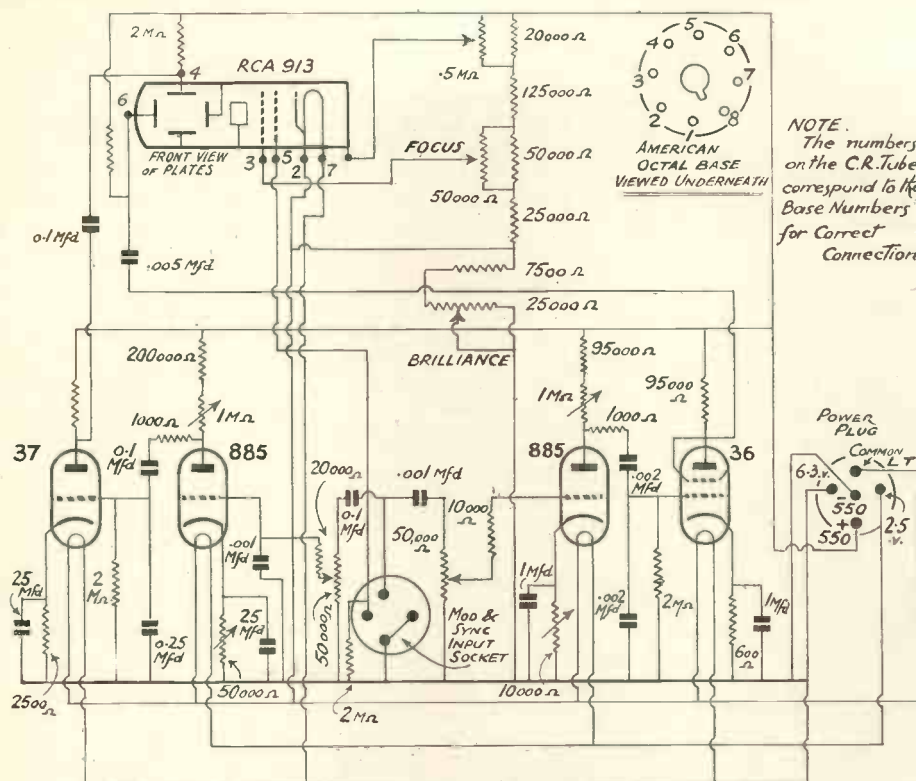 2 MΩ
RCA 913
4
6
FRONT VIEW
OF PLATES
3
5
2
7
20000 Ω
.5 MΩ
125000 Ω
FOCUS
50000 Ω
50000 Ω
25000 Ω
7500 Ω
25000 Ω
BRILLIANCE
5
4
6
3
7
2
8
1
AMERICAN
OCTAL BASE
VIEWED UNDERNEATH
NOTE.
The numbers
on the C.R. Tube
correspond to the
Base Numbers
for Correct
Connection
0.1 Mfd
.005 Mfd
200000 Ω
1000 Ω
1 MΩ
37
0.1
Mfd
885
25
Mfd
2
MΩ
0.25
Mfd
.001
Mfd
25
Mfd
2500 Ω
50000 Ω
20000
Ω
0.1
Mfd
.001 Mfd
50,000
Ω
10000
Ω
50000 Ω
MOD &
SYNC
INPUT
SOCKET
2 MΩ
95000 Ω
1 MΩ
1000 Ω
95000
Ω
885
.002
Mfd
36
1 Mfd
.002
Mfd
2 MΩ
600
Ω
1 Mfd
10000 Ω
POWER
PLUG
COMMON
L T
6.3 v.
-
550
+
550
2.5
v.